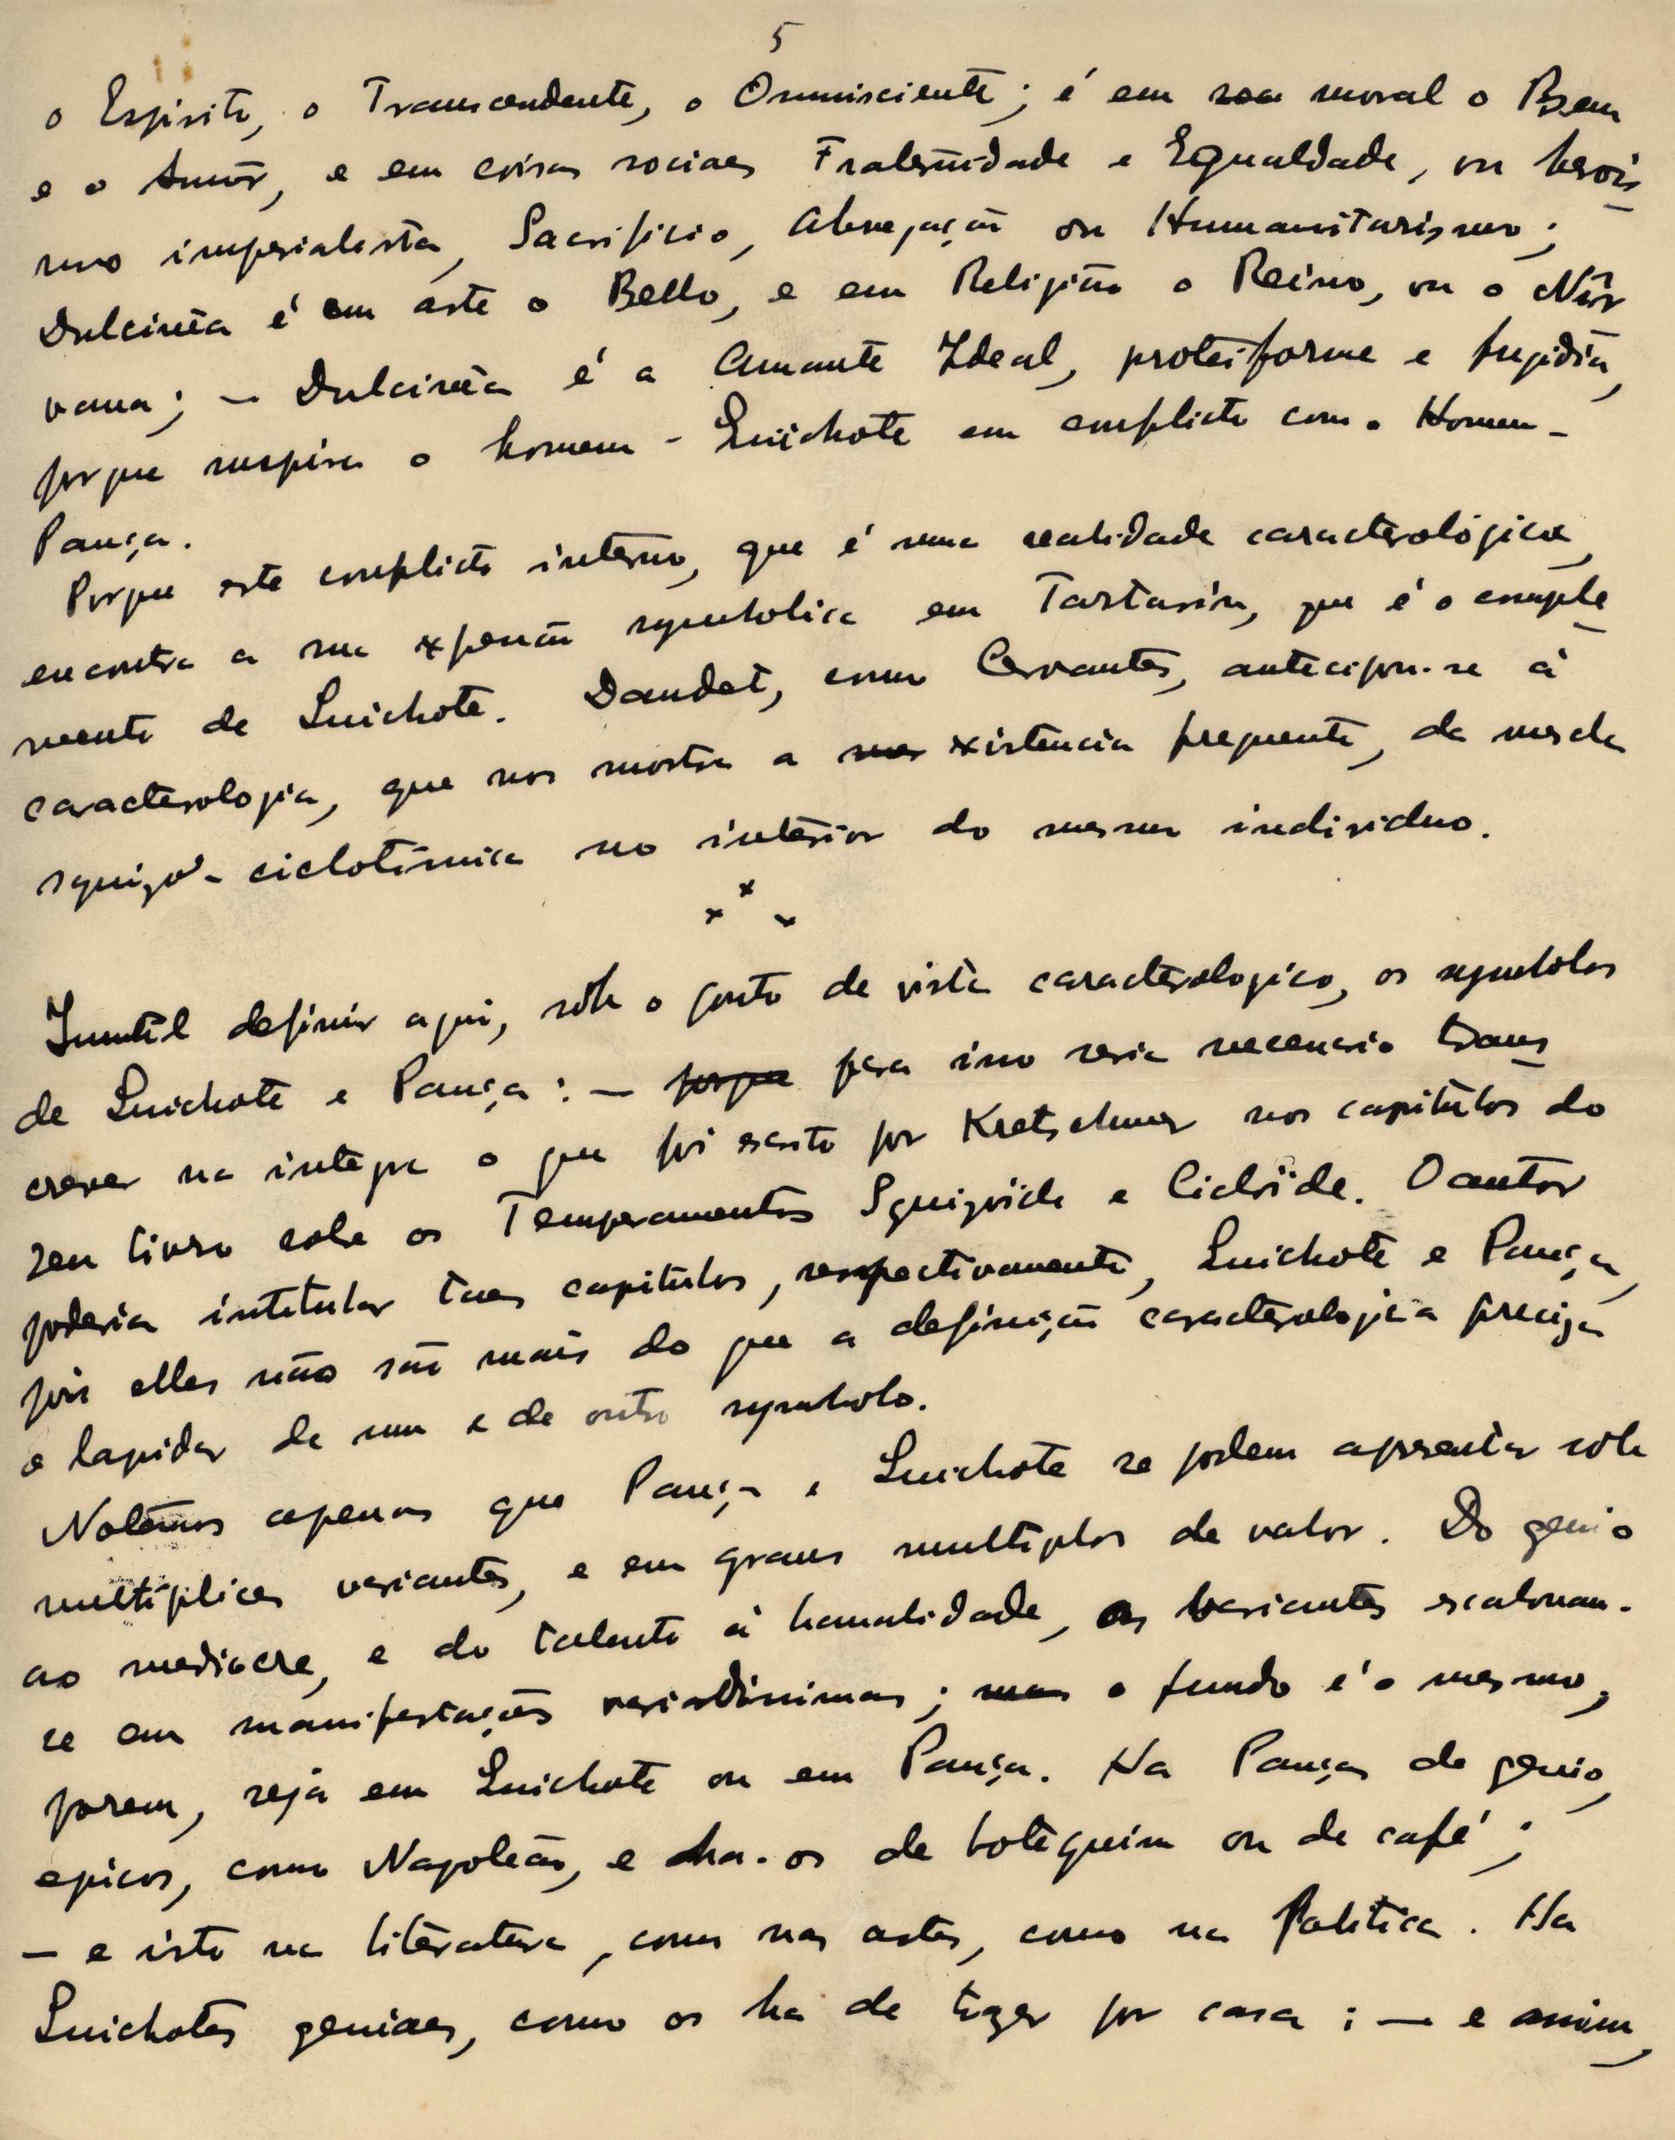 5
o Espirito, o Transcendente, o Omnisciente; é em sua moral o Bem
e o Amôr, e em coisas sociaes Fraternidade e Egualdade, ou herois
mo imperialista, Sacrificio, Abnegação ou Humanitarismo;
Dulcinêa é em arte o Bello, e em Religião o Reino, ou o Nir
vana; — Dulcinêa é a Amante Ideal, proteiforme e fugidia,
porque inspira o homem-Quichote em conflicto com o Homem-
Pança.
Porque este conflicto interno, que é uma realidade caracterológica,
encontra a sua expressão symbolica em Tartarin, que é o comple
mento de Quichote. Daudet, como Cervantes, antecipou-se á
caracterologia, que nos mostra a existencia frequente, da mescla
squizo-ciclotímica no interior do mesmo individuo.
x x x
Inutil definir aqui, sob o ponto de vista caracterologico, os symbolos
de Quichote e Pança: — porque para isso seria necessario trans
crever na integra o que foi escrito por Kretschmer nos capitulos do
seu livro sobe os Temperamentos Squizoïde e Cicloïde. O autor
poderia intitular taes capitulos, respectivamente, Quichote e Pança,
pois elles não são mais do que a definição caracterologica precisa
e lapidar de um e de outro symbolo.
Notêmos apenas que Pança e Quichote se podem apresentar sob
multiplices variantes, e em graus multiplos de valor. Do genio
ao mediocre, e do talento á banalidade, as variantes escalonam-
se em manifestações variadissimas; mas o fundo é o mesmo,
porem, seja em Quichote ou em Pança. Ha Panças de genio,
epicos, como Napoleão, e ha-os de botequim ou de café;
— e isto na literatura, como nas artes, como na Politica. Ha
Quichotes geniaes, como os ha de trazer por casa; — e assim,